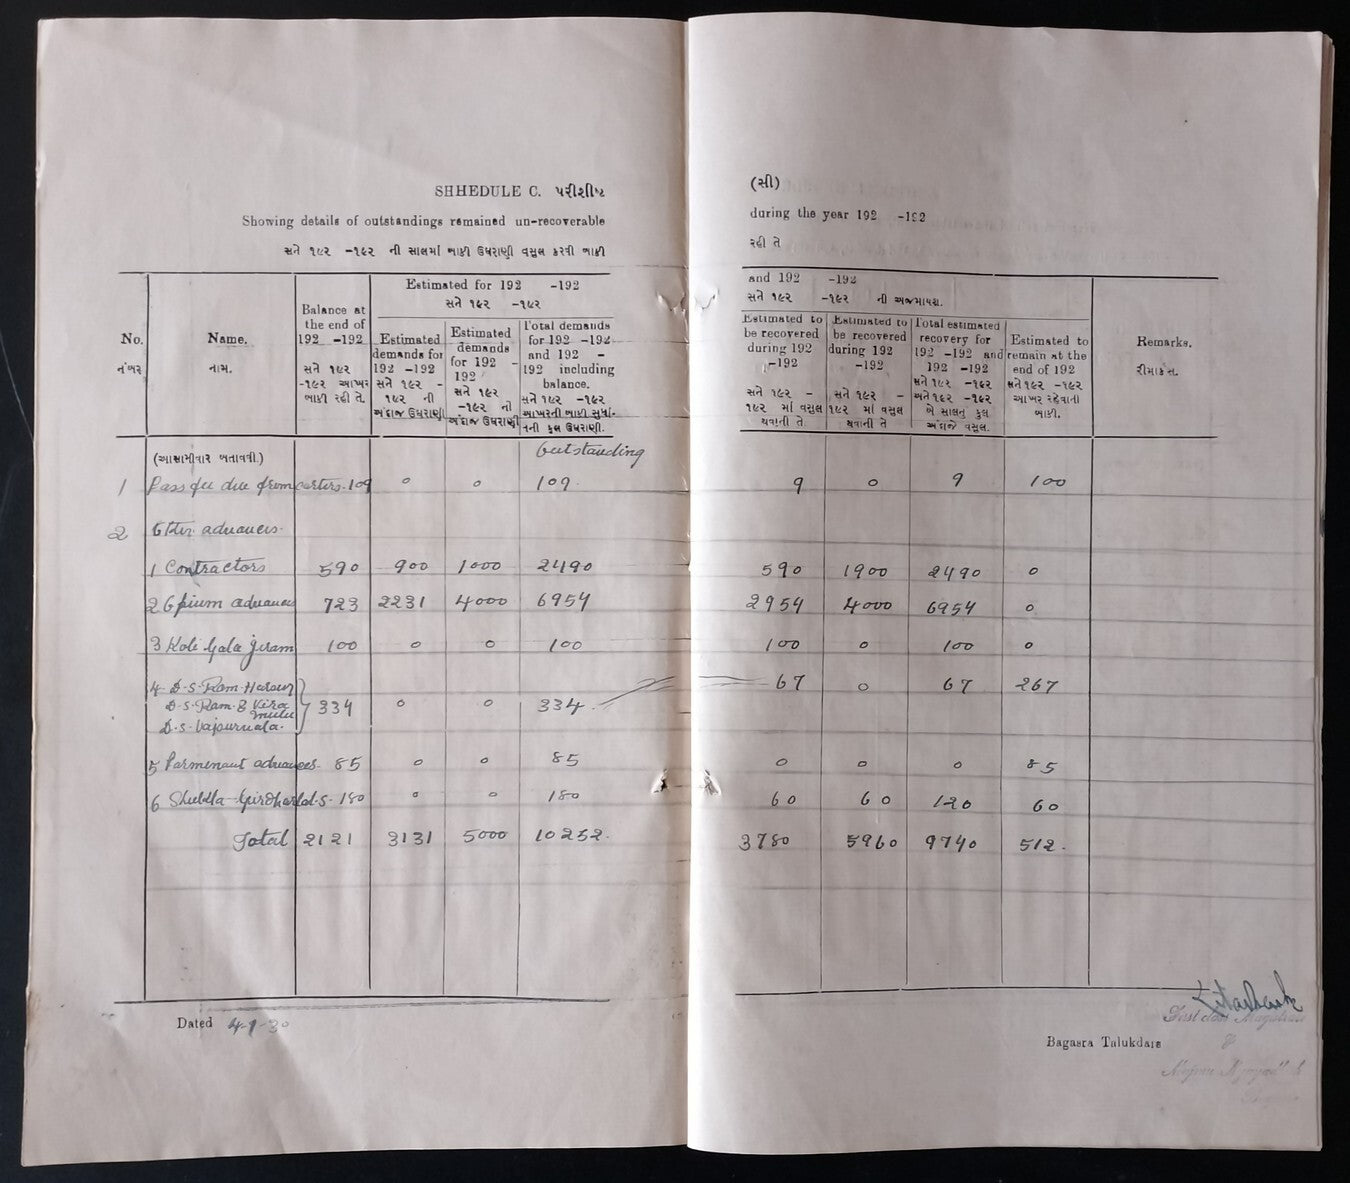 SHHEDULE C. પરીશીષ્ટ
(સી)
Showing details of outstandings remained un-recoverable
during the year 192 -192
સને ૧૯૨ -૧૯૨ ની સાલમાં બાકી ઉઘરાણી વસુલ કરવી બાકી
રહી તે
No.
નંબર
Name.
નામ.
Balance at
the end of
192 -192
સને ૧૯૨
-૧૯૨ આખર
બાકી રહી તે.
Estimated for 192 -192
સને ૧૯૨ -૧૯૨
Estimated
demands for
192 -192
સને ૧૯૨ -
૧૯૨ ની
અંદાજ ઉઘરાણી
Estimated
demands
for 192 -
192
સને ૧૯૨
-૧૯૨ નો
અંદાજ ઉઘરાણી
Total demands
for 192 -192
and 192 -
192 including
balance.
સને ૧૯૨ -૧૯૨
આખરની બાકી સુધાં-
તની કુલ ઉઘરાણી.
and 192 -192
સને ૧૯૨ -૧૯૨ ની અજમાયશ.
Estimated to
be recovered
during 192
-192
સને ૧૯૨ -
૧૯૨ માં વસુલ
થવાની તે.
Estimated to
be recovered
during 192
-192
સને ૧૯૨ -
૧૯૨ માં વસુલ
થવાની તે
Total estimated
recovery for
192 -192 and
192 -192
સને ૧૯૨ -૧૯૨
અને ૧૯૨ -૧૯૨
બે સાલનુ કુલ
અંદાજે વસુલ.
Estimated to
remain at the
end of 192
સને ૧૯૨ -૧૯૨
આખર રહેવાની
બાકી.
Remarks.
રીમાર્કસ.
(આસામીવાર બતાવવી.) Outstanding
1 Pass fee due from carters. 109 0 0 109. 9 0 9 100
2 Other advances.
1 Contractors 590 900 1000 2490 590 1900 2490 0
2 Opium advances 723 2231 4000 6954 2954 4000 6954 0
3 Koli Gala Jiram 100 0 0 100 100 0 100 0
4 D.S. Ram Harsur 67 0 67 267
D.S. Ram & Vira 334 0 0 334.
Mulu
D.S. Vajsurvala.
5 Parmenant advances. 85 0 0 85 0 0 0 85
6 Girdharlal.s. 180 0 0 180 60 60 120 60
Total 2121 3131 5000 10252. 3780 5960 9740 512.
Dated 4-9-30
First class Magistrate
Bagasra Talukdars
&